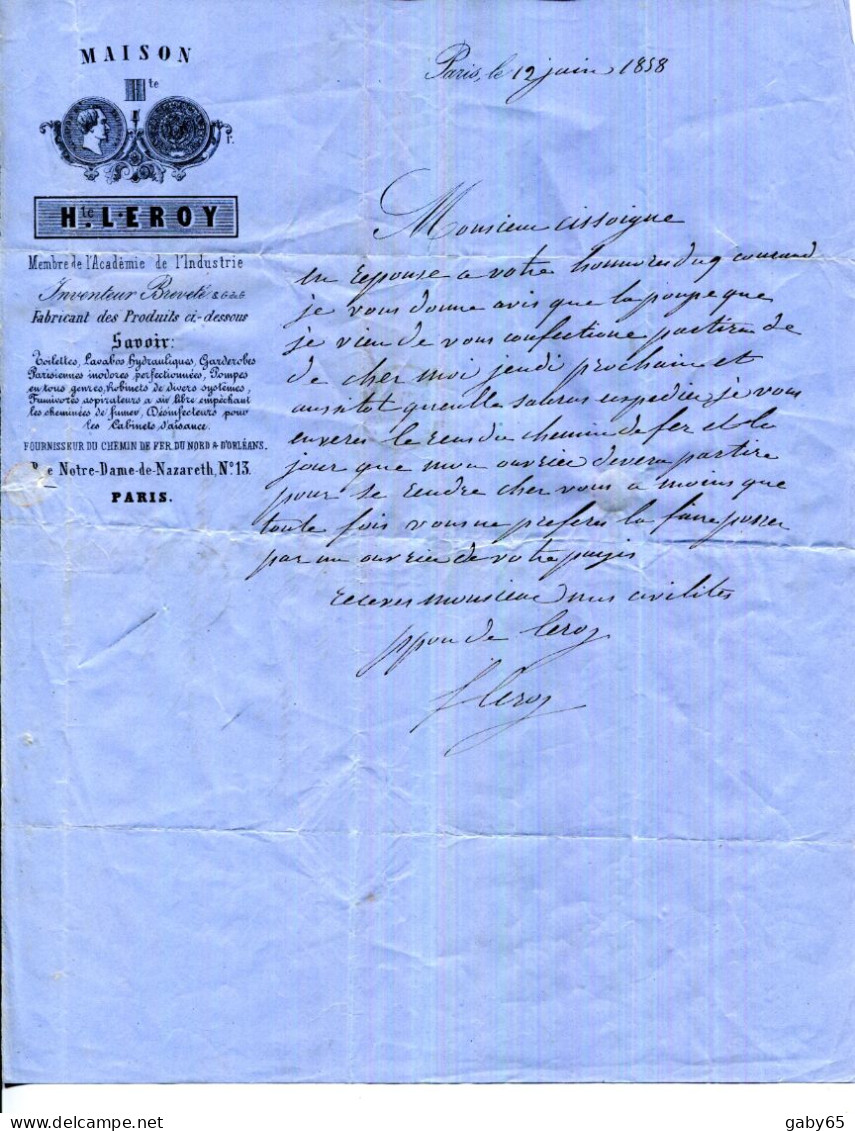 MAISON
Hte
Hte LEROY
Membre de l'Académie de l'Industrie
Inventeur Breveté S.G.d.G.
Fabricant des Produits ci-dessous
Savoir:
Toilettes, Lavabos hydrauliques, Garderobes
Parisiennes inodores perfectionnées, Pompes
en tous genres, Robinets de divers systèmes,
Fumivores aspirateurs a air libre empêchant
les cheminées de fumer, Désinfecteurs pour
les Cabinets d'aisance.
FOURNISSEUR DU CHEMIN DE FER DU NORD & D'ORLÉANS.
Rue Notre-Dame-de-Nazareth, N° 13.
PARIS.
Paris, le 12 juin 1858
Monsieur
en reponse a votre honnores du 9 courand
je vous donne avis que la ponpe que
je vien de vous confectione partira de
de cher moi jeudi prochain et
aussitot quenlle saura expedie je vous
enveres le resu du chemin de fer et la
jour que mon ouvrier devera partire
pour se rendre cher vous a moins que
toute fois vous ne preferes la faire poser
par un ouvrier de votre payis
receves monsieur mes civilites
ppon de leroy
leroy
gaby65